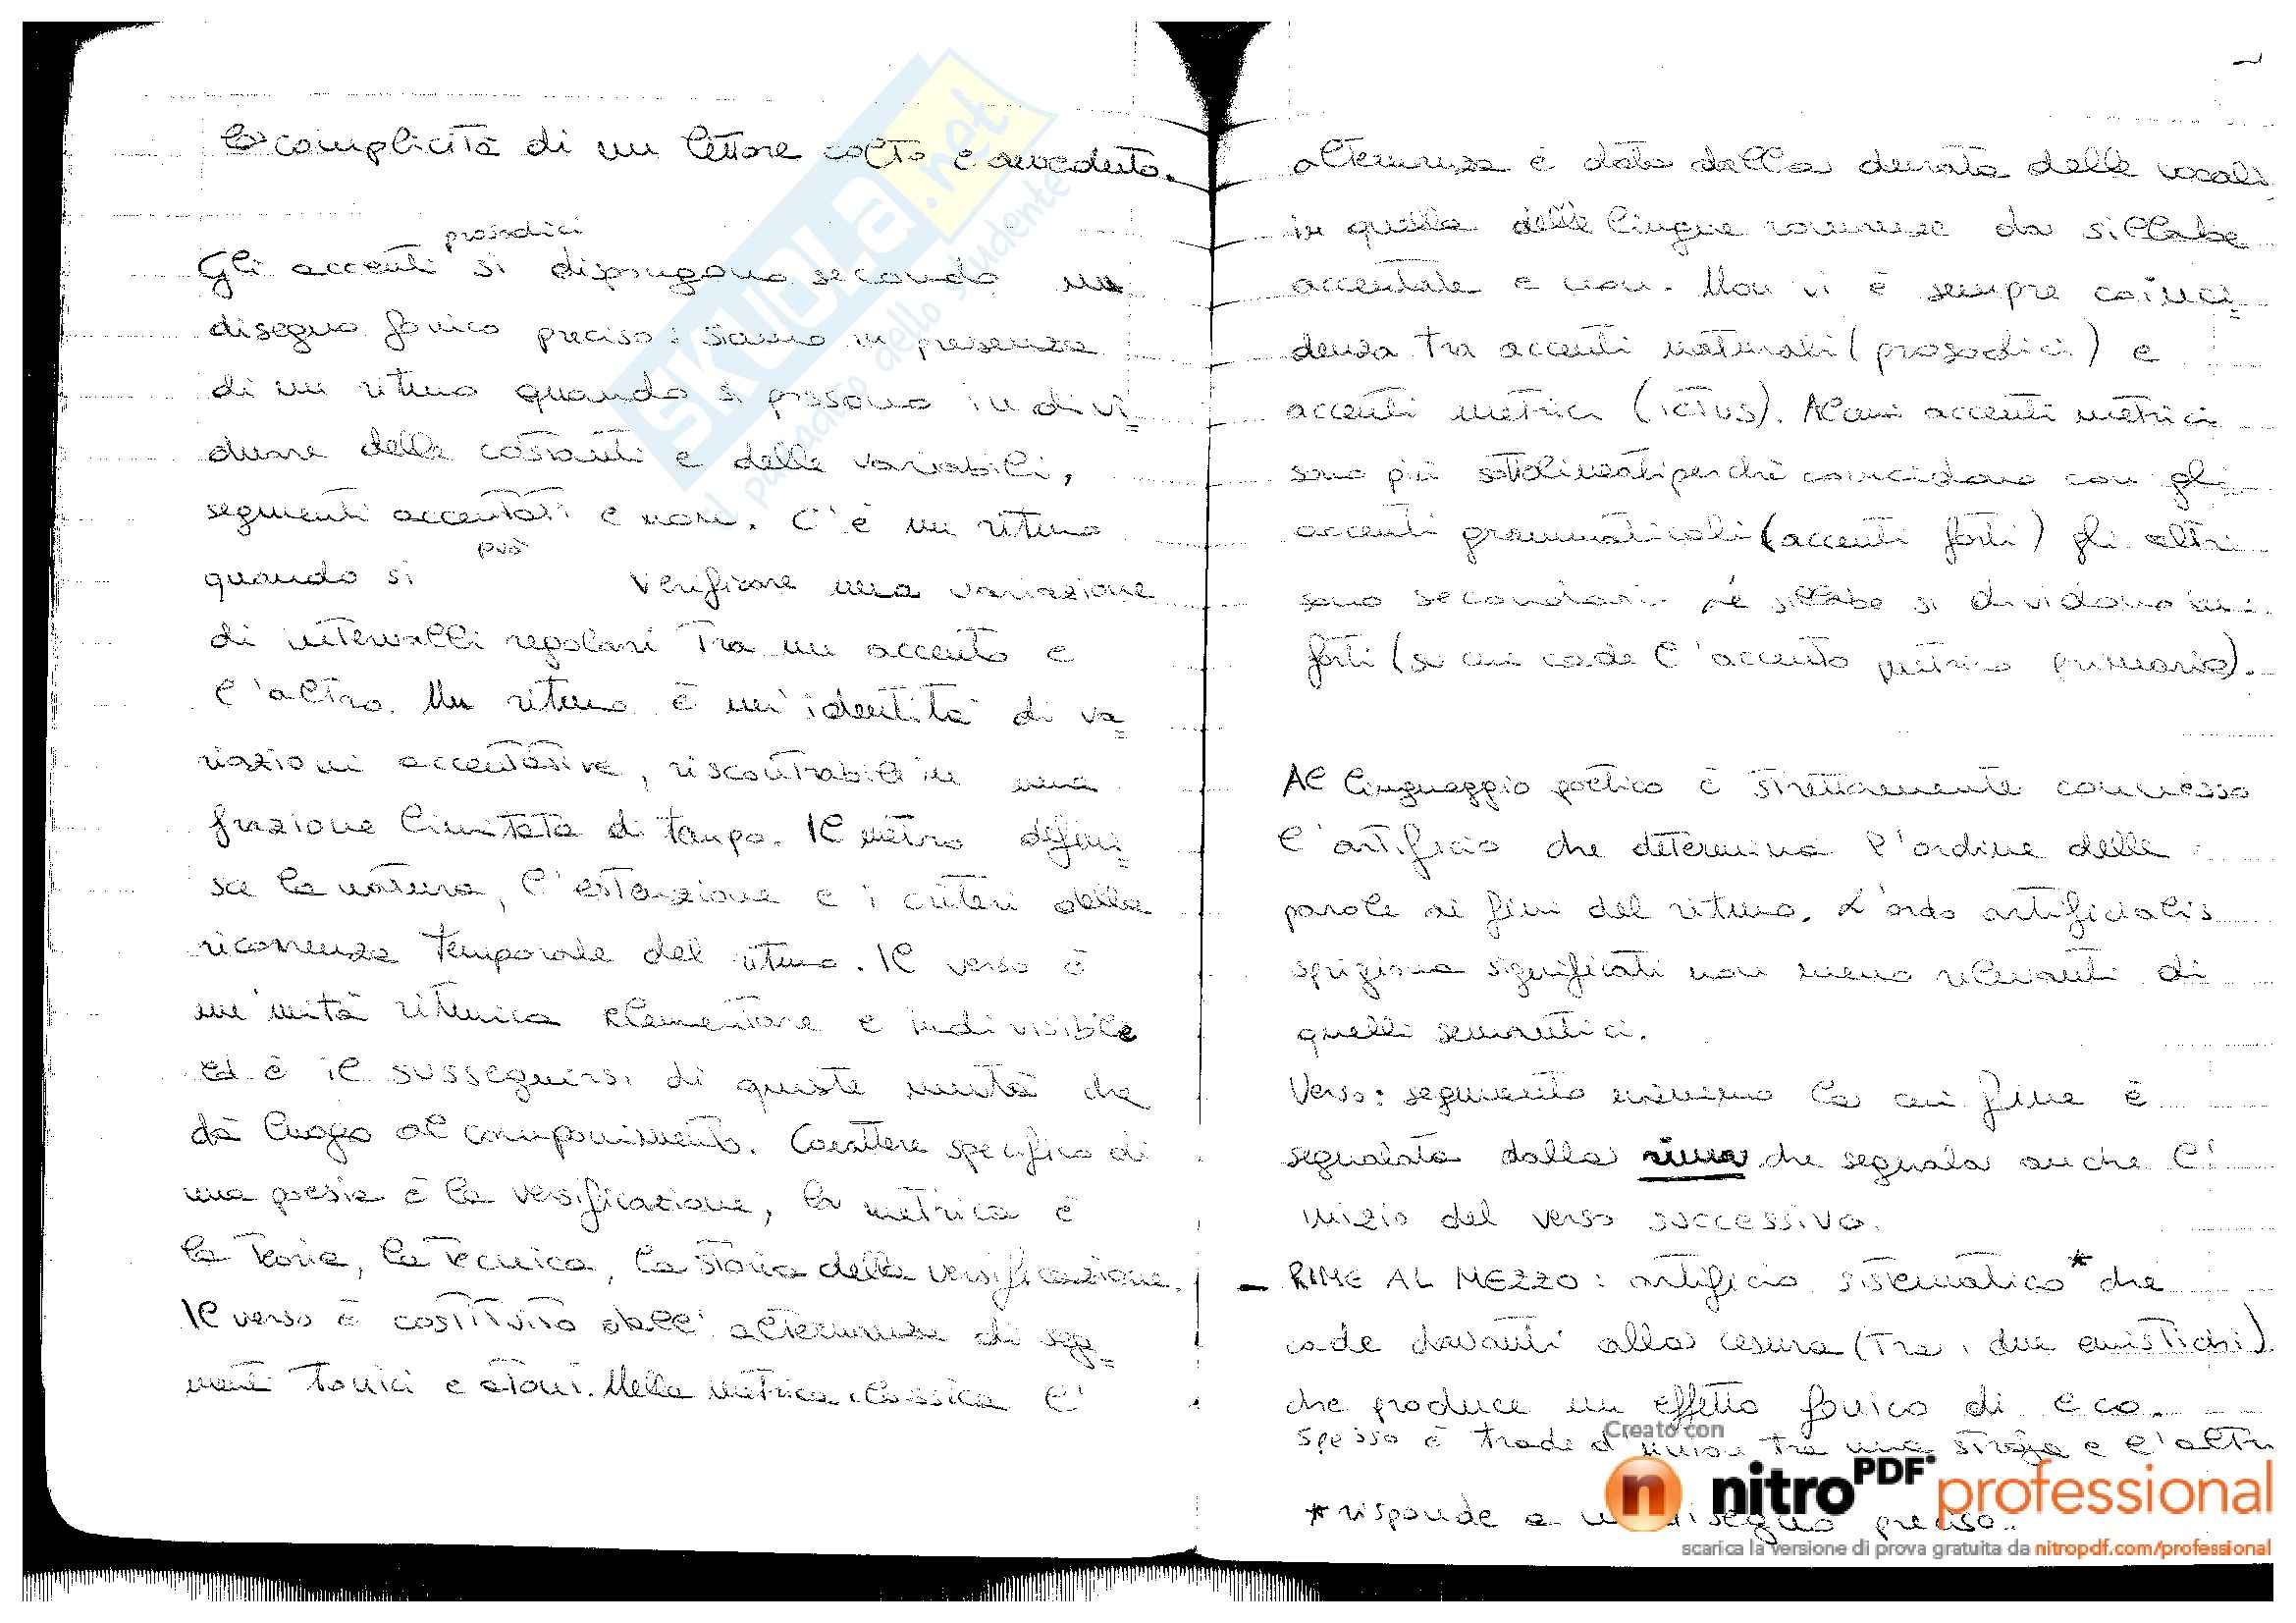 la complicità di un lettore colto e avveduto.
prosodici
Gli accenti si dispongono secondo un
disegno fonico preciso: siamo in presenza
di un ritmo quando si possono indivi=
duare delle costanti e delle variabili,
segmenti accentati e non. C'è un ritmo
può
quando si verificare una variazione
di intervalli regolari tra un accento e
l'altro. Un ritmo è un'identità di va=
riazioni accentative, riscontrabili in una
frazione limitata di tempo. Il metro defini=
sce la natura, l'estenzione e i criteri della
ricorrenza temporale del ritmo. Il verso è
un'unità ritmica elementare e indivisibile
ed è il susseguirsi di queste unità che
dà luogo al componimento. Carattere specifico di
una poesia è la versificazione, la metrica è
la teoria, la tecnica, la storia della versificazione.
Il verso è costituito dall'alternanza di seg=
menti tonici e atoni. Nella metrica classica l'
alternanza è data dalla durata delle vocali
in quella delle lingue romanze da sillabe
accentate e non. Non vi è sempre coinci=
denza tra accenti naturali (prosodici) e
accenti metrici (ictus). Alcuni accenti metrici
sono più sottolineati perchè coincidono con gli
accenti grammaticali (accenti forti) gli altri
sono secondari. Le sillabe si dividono in:
forti (su cui cade l'accento metrico primario).
Al linguaggio poetico è strettamente connesso
l'artificio che determina l'ordine delle
parole ai fini del ritmo. L'ordo artificialis
sprigiona significati non meno rilevanti di
quelli semantici.
Verso: segmento minimo la cui fine è
segnalata dalla rima che segnala anche l'
inizio del verso successivo.
- RIME AL MEZZO: artificio sistematico* che
cade davanti alla cesura (tra i due emistichi)
che produce un effetto fonico di eco.
Spesso è trade d'union tra una strofa e l'altr
*risponde a un disegno preciso.
SKUOLA.net
il paradiso dello studente
Creato con
nitroPDF professional
scarica la versione di prova gratuita da nitropdf.com/professional